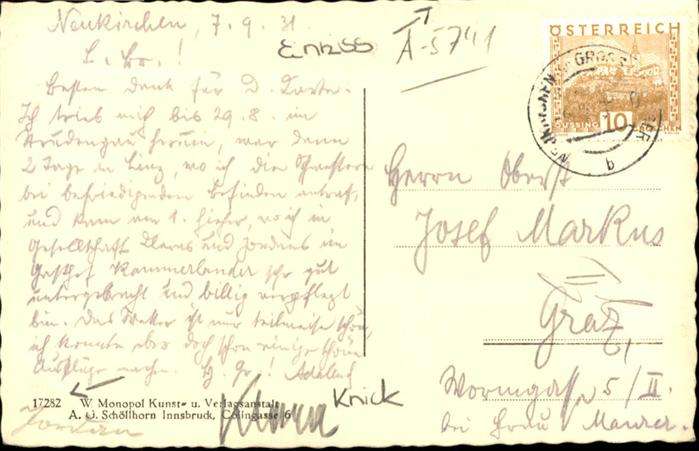 Neukirchen, 7.9.31
L. Hr.!
Besten Dank für D. Karte.
Ich trieb mich bis 29.8. im
Strudengau herum, war dann
2 Tage in Linz, wo ich die
bei befriedigendem Befinden antraf,
und kam am 1. hieher, wo ich in
Gesellschaft und Jordans im
Gasthof Kammerlander sehr gut
untergebracht und billig verpflegt
bin. Das Wetter ist nur teilweise schön,
ich konnte aber doch schon einige schöne
Ausflüge machen. Hz. Gr.!
17282 W Monopol Kunst- u. Verlagsanstalt
A. G. Schöllhorn Innsbruck, Colingasse 6
Jordan
Einriss
A-5741
Knick
ÖSTERREICH
GÜSSING
10
b
Herrn Oberst
Josef Markus
Graz
Wormgasse 5/II.
bei Frau Maurer.